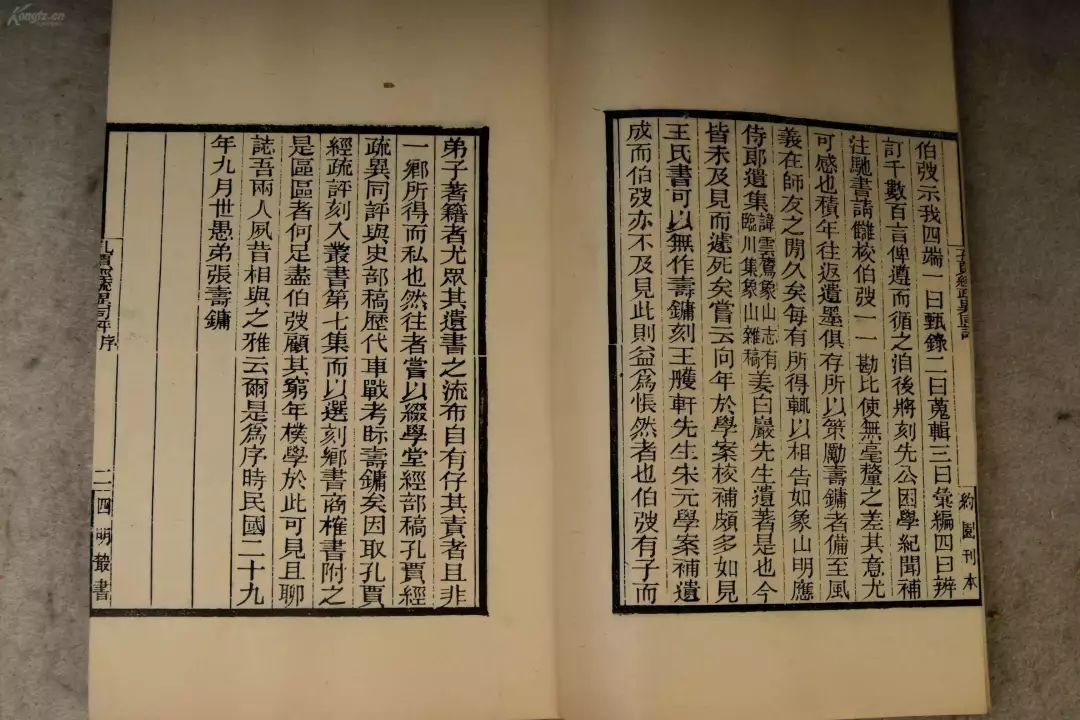 伯弢示我四端一曰甄錄二曰蒐輯三曰彙編四曰辨
訂千數百言俾遵而循之洎後將刻先公困學紀聞補
注馳書請讎校伯弢一一勘比使無毫釐之差其意尤
可感也積年往返遺墨俱存所以策勵壽鏞者備至風
義在師友之閒久矣每有所得輒以相告如象山明應
侍郎遺集諱雲鸑象山志有臨川集象山雜稿姜白巖先生遺著是也今
皆未及見而遽死矣嘗云向年於學案校補頗多如見
王氏書可以無作壽鏞刻王臒軒先生宋元學案補遺
成而伯弢亦不及見此則益爲悵然者也伯弢有子而
約園刊本
弟子著籍者尤眾其遺書之流布自有仔其責者且非
一鄉所得而私也然往者嘗以綴學堂經部稿孔賈經
疏異同評與史部稿歷代車戰考眎壽鏞矣因取孔賈
經疏評刻入叢書第七集而以選刻鄉書商榷書附之
是區區者何足盡伯弢顧其窮年樸學於此可見且聊
誌吾兩人夙昔相與之雅云爾是爲序時民國二十九
年九月世愚弟張壽鏞
序
二
四明叢書
Kongfz.cn